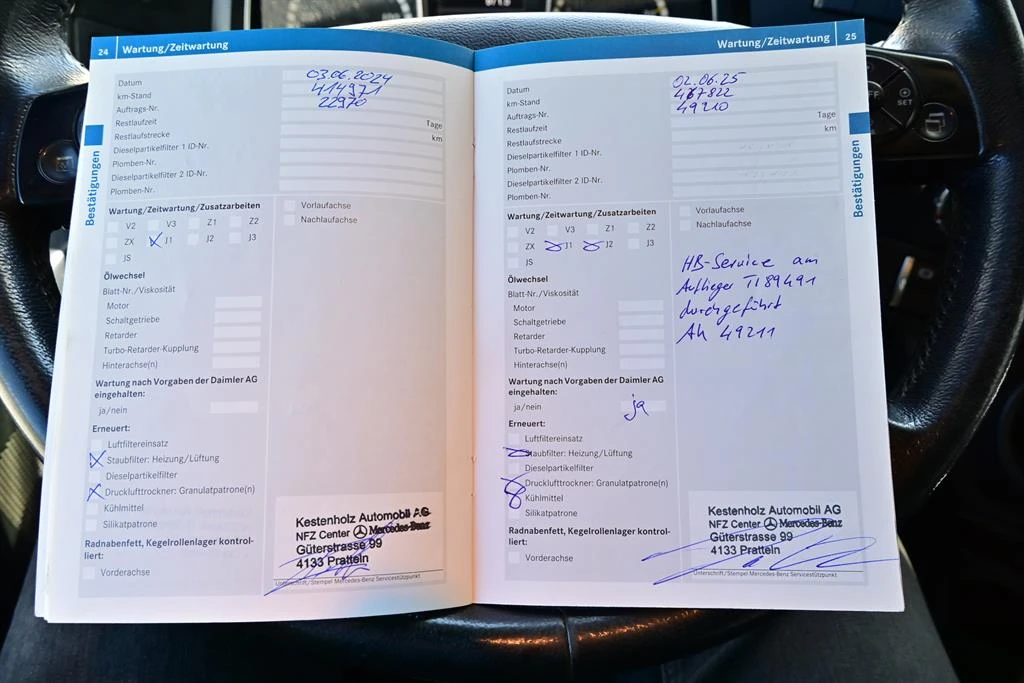 24 Wartung/Zeitwartung
Datum 03.06.2024
km-Stand 414971
Auftrags-Nr. 22970
Restlaufzeit Tage
Restlaufstrecke km
Dieselpartikelfilter 1 ID-Nr.
Plomben-Nr.
Dieselpartikelfilter 2 ID-Nr.
Plomben-Nr.
Bestätigungen
Wartung/Zeitwartung/Zusatzarbeiten
V2 V3 Z1 Z2
ZX J1 J2 J3
JS
Vorlaufachse
Nachlaufachse
Ölwechsel
Blatt-Nr./Viskosität
Motor
Schaltgetriebe
Retarder
Turbo-Retarder-Kupplung
Hinterachse(n)
Wartung nach Vorgaben der Daimler AG
eingehalten:
ja/nein
Erneuert:
Luftfiltereinsatz
Staubfilter: Heizung/Lüftung
Dieselpartikelfilter
Drucklufttrockner: Granulatpatrone(n)
Kühlmittel
Silikatpatrone
Radnabenfett, Kegelrollenlager kontrol-
liert:
Vorderachse
Kestenholz Automobil AG
NFZ Center Mercedes-Benz
Güterstrasse 99
4133 Pratteln
Unterschrift/Stempel Mercedes-Benz Servicestützpunkt
Wartung/Zeitwartung 25
Datum 02.06.25
km-Stand 467822
Auftrags-Nr. 49210
Restlaufzeit Tage
Restlaufstrecke km
Dieselpartikelfilter 1 ID-Nr.
Plomben-Nr.
Dieselpartikelfilter 2 ID-Nr.
Plomben-Nr.
Bestätigungen
Wartung/Zeitwartung/Zusatzarbeiten
V2 V3 Z1 Z2
ZX J1 J2 J3
JS
Vorlaufachse
Nachlaufachse
HB-Service am
Auflieger TI89491
durchgeführt
AN 49211
Ölwechsel
Blatt-Nr./Viskosität
Motor
Schaltgetriebe
Retarder
Turbo-Retarder-Kupplung
Hinterachse(n)
Wartung nach Vorgaben der Daimler AG
eingehalten:
ja/nein ja
Erneuert:
Luftfiltereinsatz
Staubfilter: Heizung/Lüftung
Dieselpartikelfilter
Drucklufttrockner: Granulatpatrone(n)
Kühlmittel
Silikatpatrone
Radnabenfett, Kegelrollenlager kontrol-
liert:
Vorderachse
Kestenholz Automobil AG
NFZ Center Mercedes-Benz
Güterstrasse 99
4133 Pratteln
Unterschrift/Stempel Mercedes-Benz Servicestützpunkt
SET